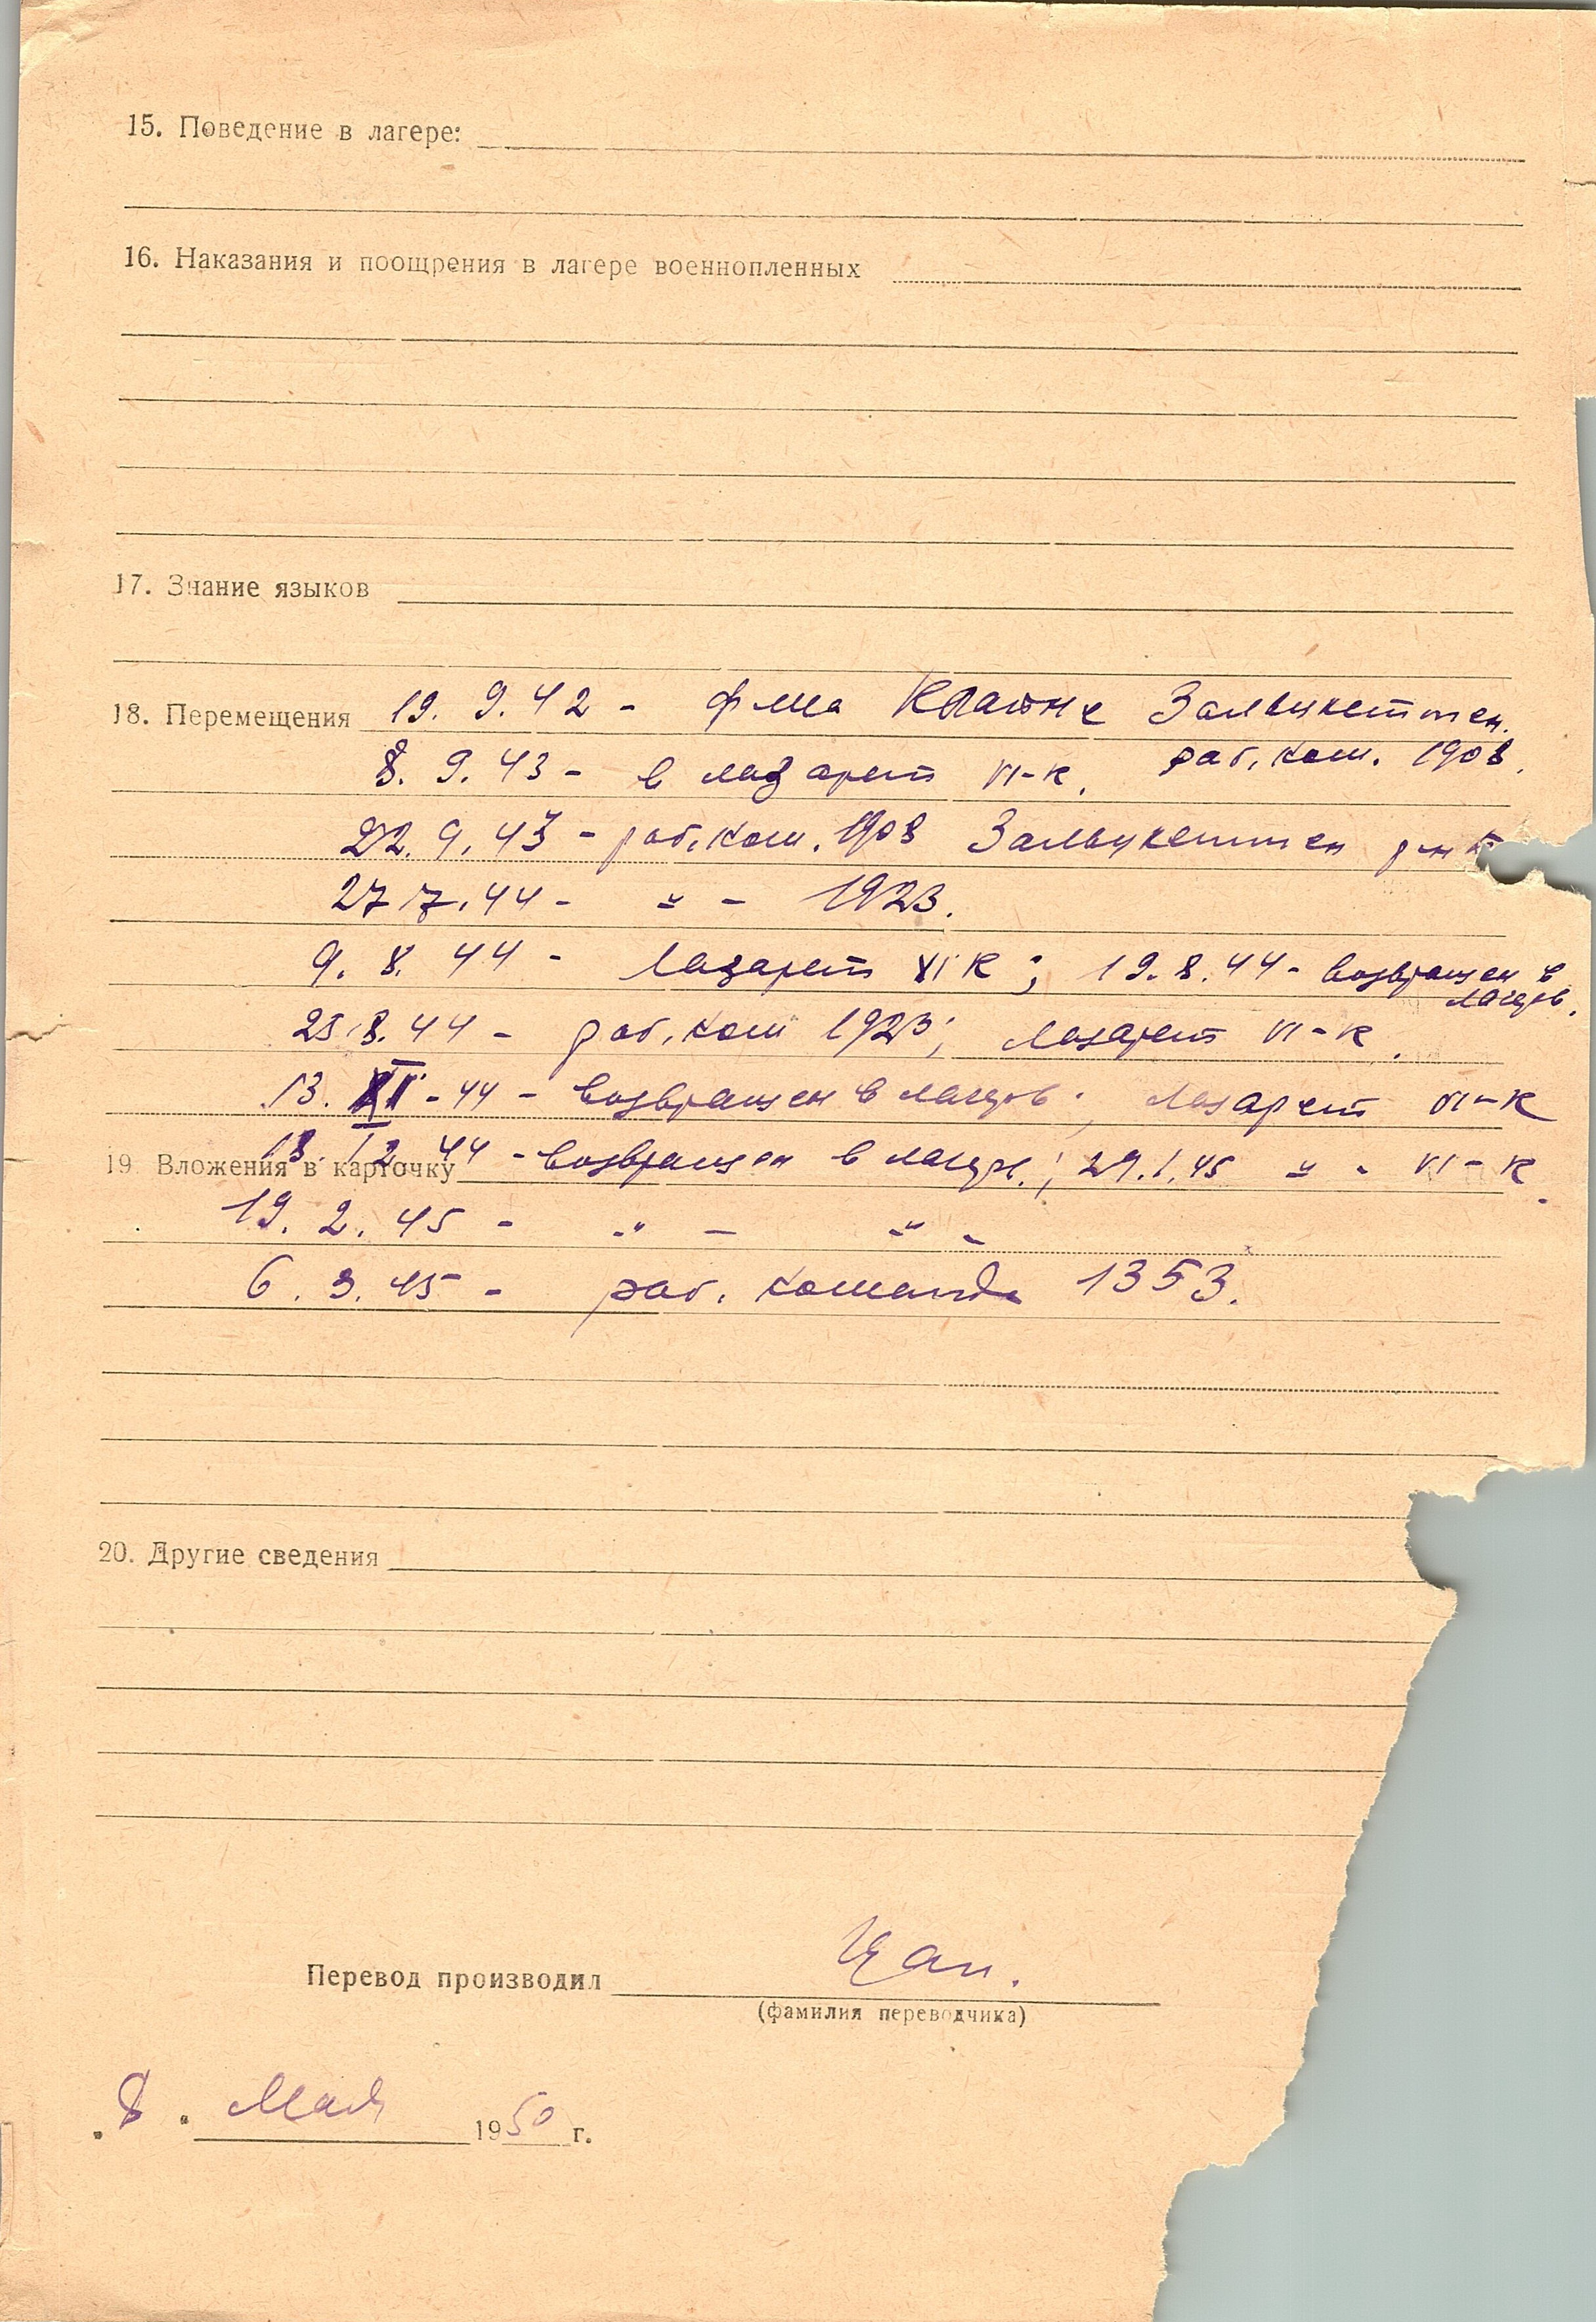 15. Поведение в лагере:
16. Наказания и поощрения в лагере военнопленных
17. Знание языков
18. Перемещения 19. 9. 42 - ф-ма Зальцкеттен.
8. 9. 43 - в лазарет VI-К. раб. ком. 1908.
22. 9. 43 - раб. ком. 1908 Зальцкеттен
27. 7. 44 - " - 1923.
9. 8. 44 - Лазарет VI К; 19. 8. 44 - возвращен в
лагерь.
25. 8. 44 - раб. ком 1923; Лазарет VI-К.
13. XI - 44 - возвращен в лагерь; Лазарет VI-К
18. 12. 44 - возвращен в лагерь; 29. 1. 45 " - VI-К.
19. Вложения в карточку
19. 2. 45 - " - " -
6. 3. 45 - раб. команда 1353.
20. Другие сведения
Перевод производил Цап.
(фамилия переводчика)
"8" Мая 1950 г.